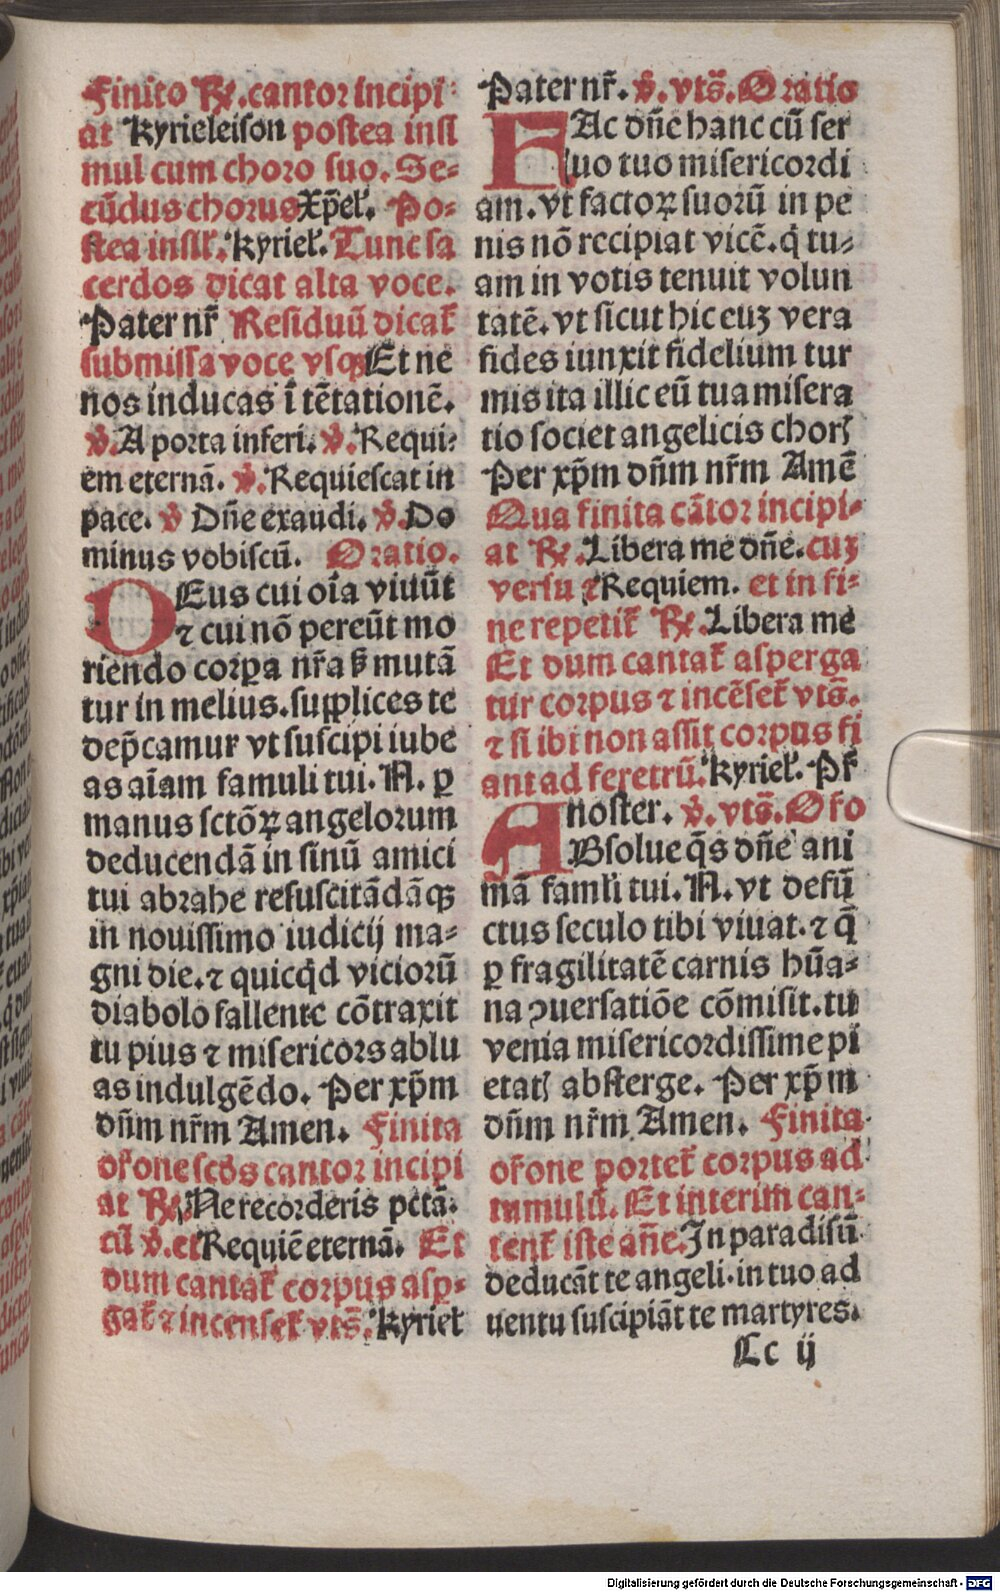 Finito R̷. cantor incipi
at Kyrieleison postea insi
mul cum choro suo. Se-
cūdus chorus Xp̄eł. Po-
stea insił. Kyrieł. Tunc sa
cerdos dicat alta voce.
Pater nr̄ Residuū dicat̄
submissa voce vsqꝫ Et ne
nos inducas ī tētationē.
v̄. A porta inferi. v̄. Requi-
em eternā. v̄. Requiescat in
pace. v̄ Dn̄e exaudi. v̄. Do
minus vobiscū. Oratio.
DEus cui oīa viuūt
⁊ cui nō pereūt mo
riendo corpa nr̄a ß mutā
tur in melius. supplices te
dep̄camur vt suscipi iube
as aīam famuli tui. N. ꝑ
manus sctōꝝ angelorum
deducendā in sinū amici
tui abrahe resuscitādāqꝫ
in nouissimo iudicij ma-
gni die. ⁊ quicq̄d viciorū
diabolo fallente cōtraxit
tu pius ⁊ misericors ablu
as indulgēdo. Per xp̄m
dn̄m nr̄m Amen. Finita
or̄one scd̄s cantor incipi
at R̷. Ne recorderis pctā.
cū v̄. et Requiē eternā. Et
dum cantat̄ corpus asꝑ-
gat̄ ⁊ incenset̄ vts̄. Kyrieł
Pater nr̄. v̄. vts̄. Oratio
FAc dn̄e hanc cū ser
uo tuo misericordi
am. vt factoꝝ suorū in pe
nis nō recipiat vicē. q̄ tu-
am in votis tenuit volun
tatē. vt sicut hic euꝫ vera
fides iunxit fidelium tur
mis ita illic eū tua misera
tio societ angelicis chorꝭ
Per xp̄m dn̄m nr̄m Amē
Qua finita cātor incipi-
at R̷. Libera me dn̄e. cuꝫ
versu ⁊ Requiem. et in fi-
ne repetit̄ R̷. Libera me
Et dum cantat̄ asperga
tur corpus ⁊ incēset̄ vts̄.
⁊ si ibi non assit corpus fi
ant ad feretrū. Kyrieł. Pr̄
noster. v̄. vts̄. Oŕo
ABsolue q̄s dn̄e ani
mā famłi tui. N. vt defū
ctus seculo tibi viuat. ⁊ q̄
ꝑ fragilitatē carnis hūa-
na ꝯuersatiōe cōmisit. tu
venia misericordissime pi
etatꝭ absterge. Per xp̄m
dn̄m nr̄m Amen. Finita
or̄one portet̄ corpus ad
tumulū. Et interim can-
tent̄ iste an̄e. In paradisū
deducāt te angeli. in tuo ad
uentu suscipiāt te martyres.
Cc ij
Digitalisierung gefördert durch die Deutsche Forschungsgemeinschaft - DFG